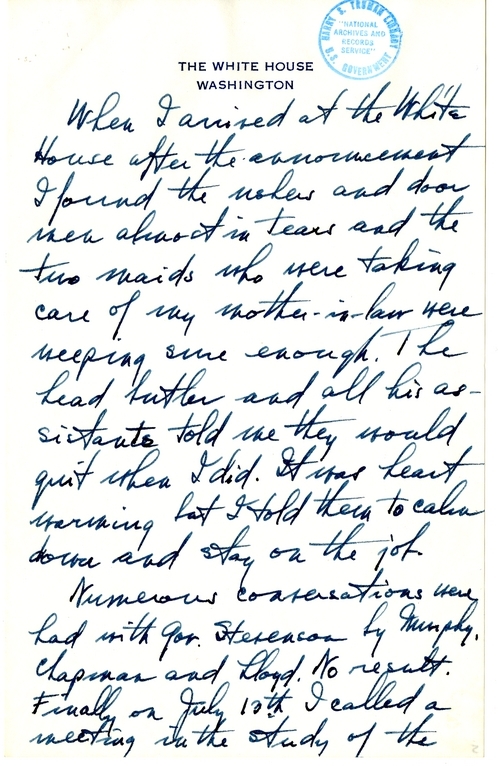 HARRY S. TRUMAN LIBRARY
"NATIONAL
ARCHIVES AND
RECORDS
SERVICE"
U.S. GOVERNMENT
THE WHITE HOUSE
WASHINGTON
When I arrived at the White
House after the announcement
I found the ushers and door
men almost in tears and the
two maids who were taking
care of my mother-in-law were
weeping sure enough. The
head butler and all his as-
sistants told me they would
quit when I did. It was heart
warming but I told them to calm
down and stay on the job.
Numerous conversations were
had with Gov. Stevenson by Murphy,
Chapman and Lloyd. No result.
Finally on July 13th I called a
meeting in the study of the
2